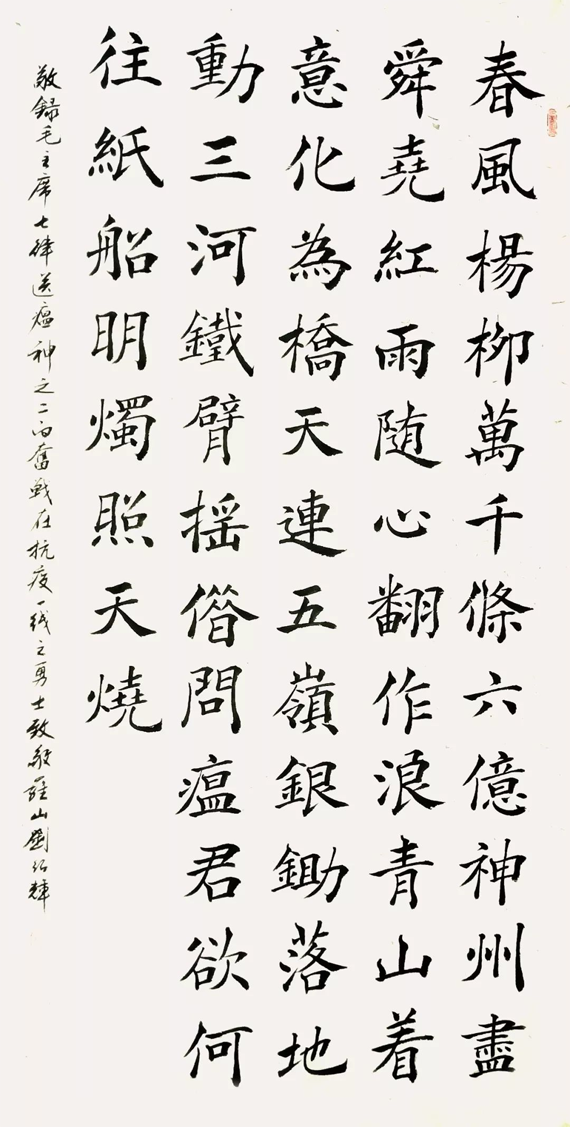 春風楊柳萬千條六億神州盡
舜堯紅雨随心翻作浪青山着
意化為橋天連五嶺銀鋤落地
動三河鐵臂摇借問瘟君欲何
往紙船明燭照天燒
敬録毛主席七律送瘟神之二向奮战在抗疫一线之勇士致敬羅山劉輝